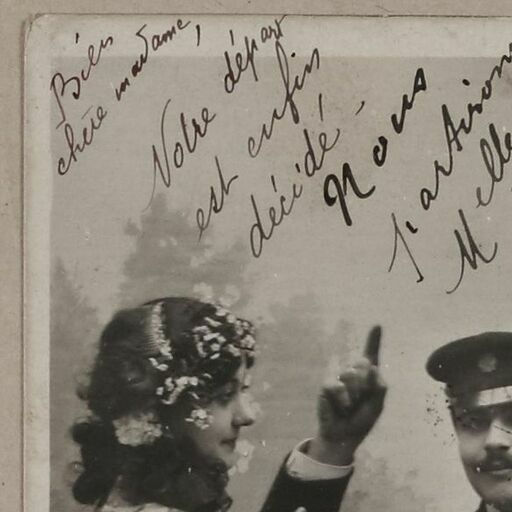 Bien
chère madame,
Votre départ
est enfin
décidé, -
Nous
partirons
Melle